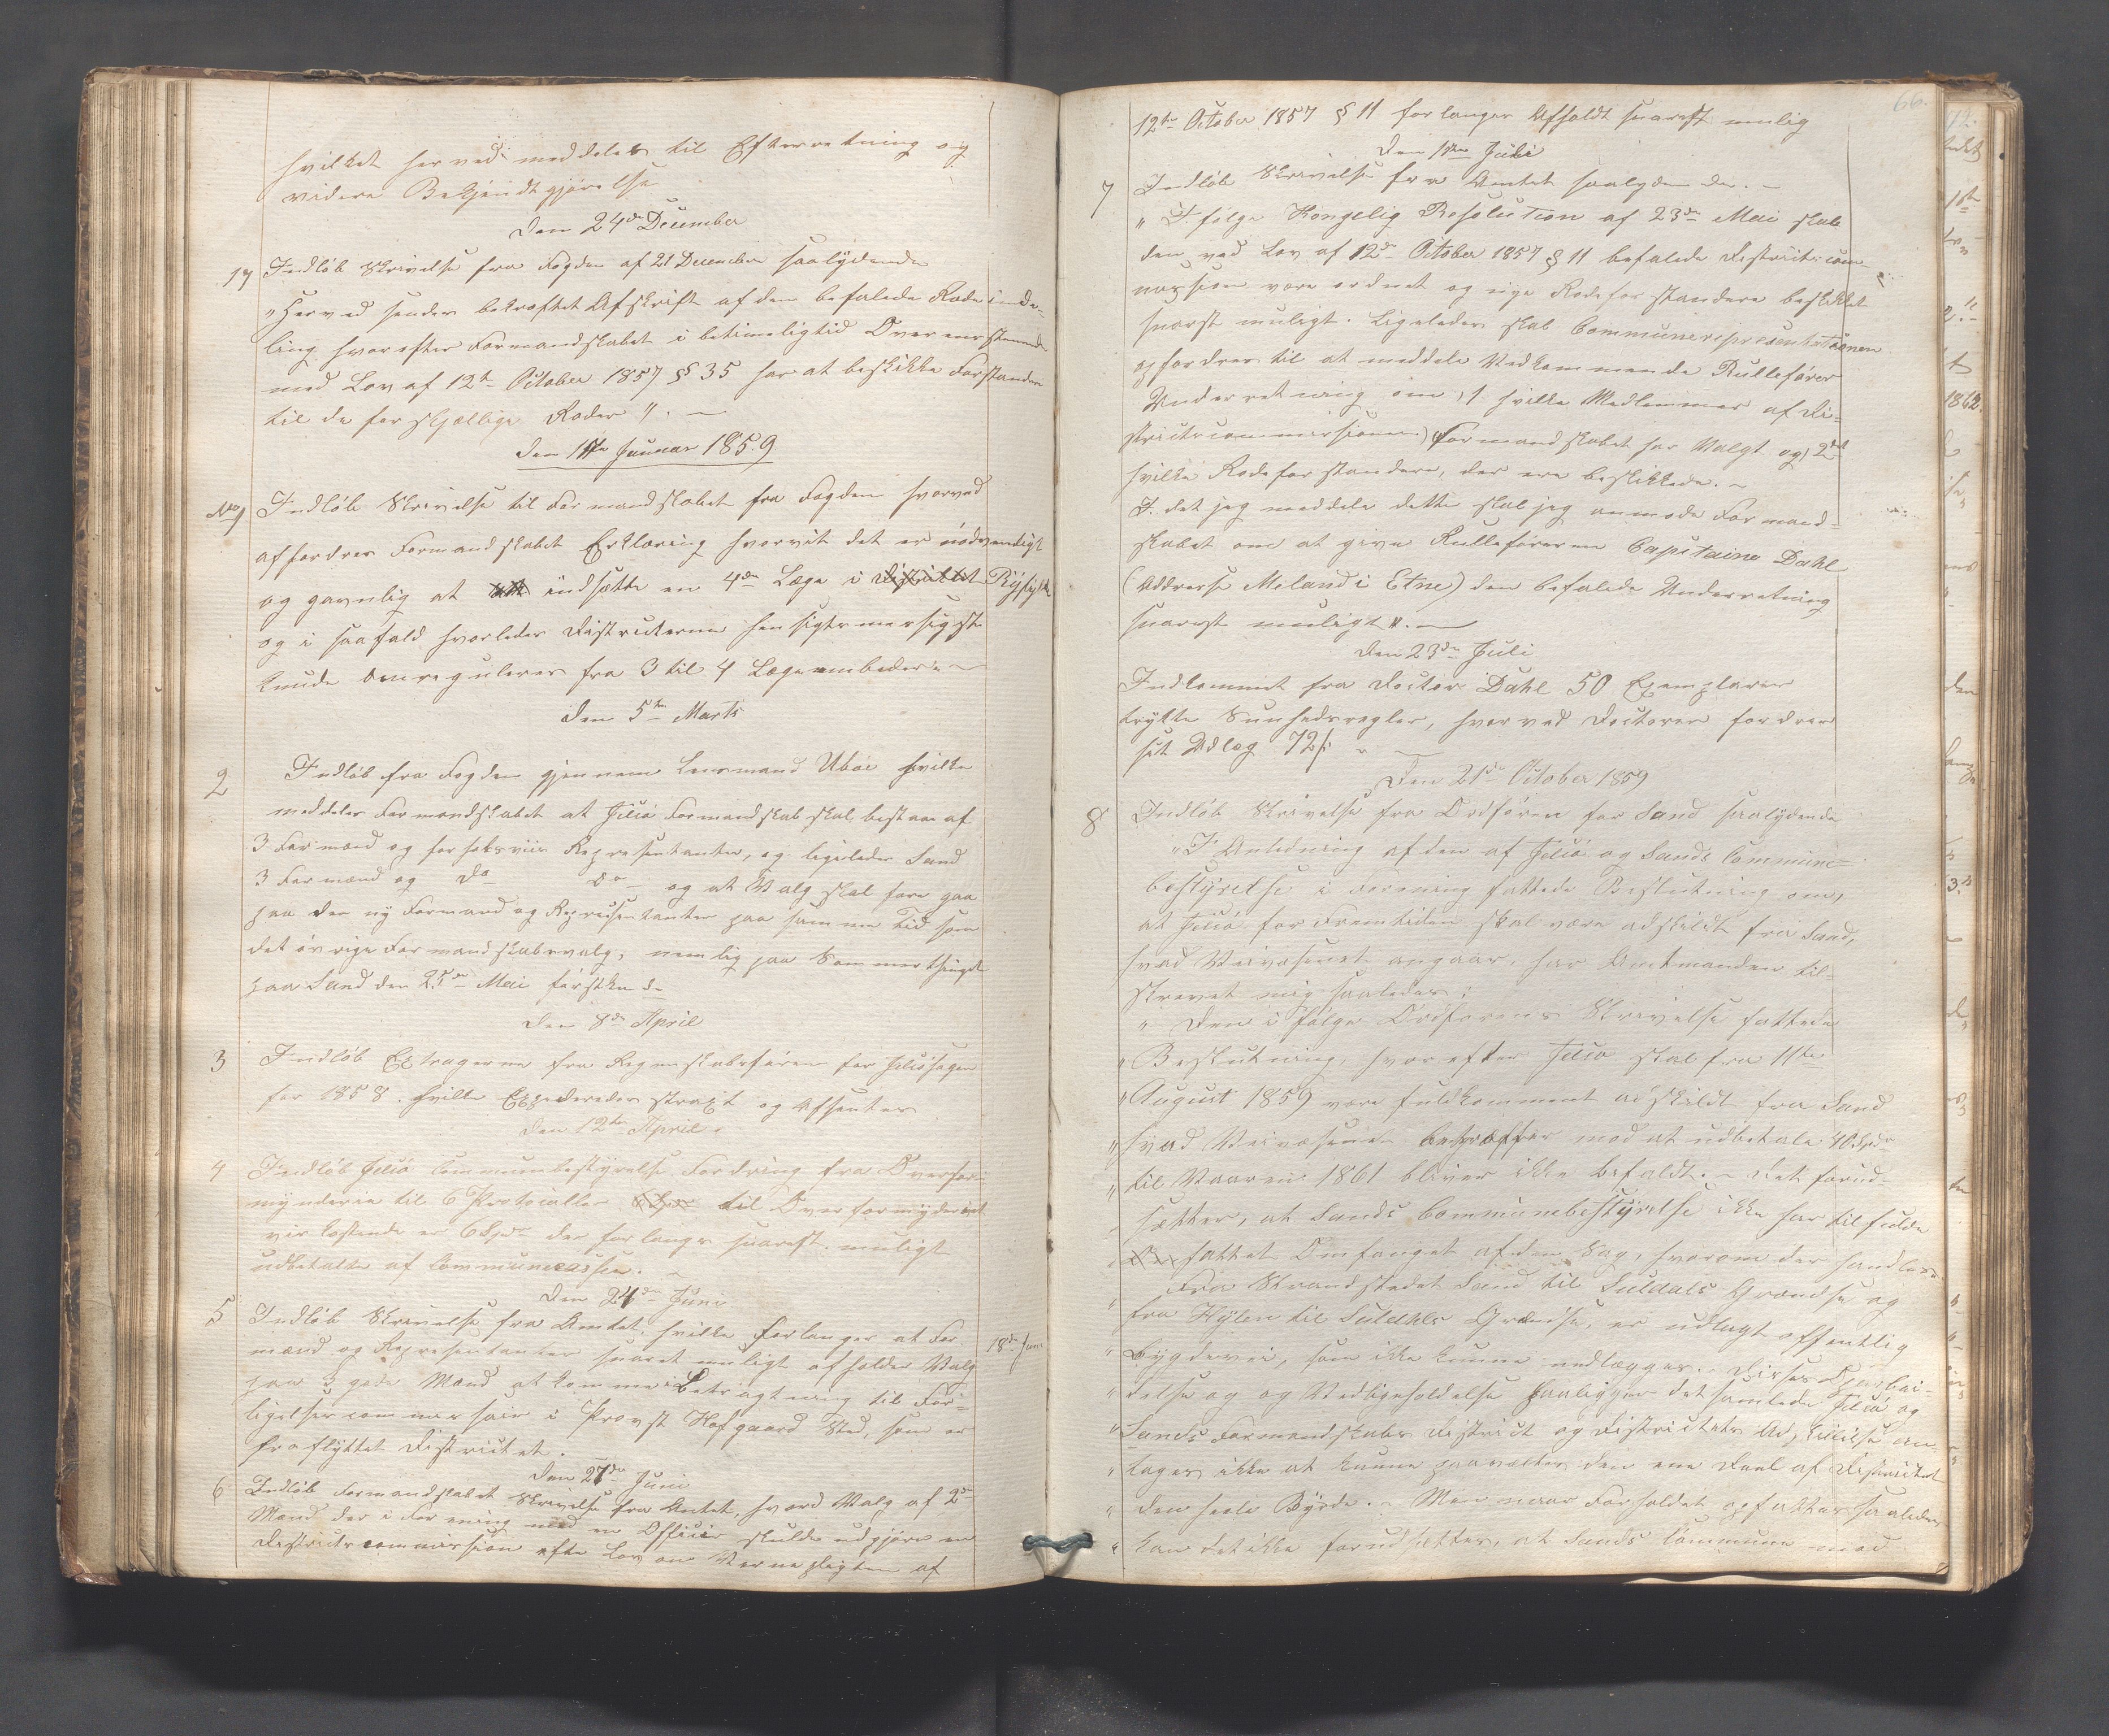 hvilket herved meddeles til Efterretning og
videre Bekjendtgjørelse
Den 24de December
17 Indløb Skrivelse fra Fogden af 21 December saalydende
"Herved sendes bekræftet Afskrift af den befalede Rodeinde-
ling hvorefter Formandskabet i betimeligtid Overensstemmende
med Lov af 12te October 1857 § 35 har at beskikke Forstandere
til de forskjællige Roder". –
Den 11te Januar 1859
No 1 Indløb Skrivelse til Formandskabet fra Fogden hvorved
affordres Formandskabet Erklæring hvorvit det er nödvendigt
og gavnlig at indsætte en 4de Læge i Districtet Ryfylke
og i saafald hvorledes Districterne hensigtsmæssigst
kunde omreguleres fra 3 til 4 Lægeembeder. –
Den 5te Marts
2 Indløb fra Fogden gjennem Lensmand Uboe hvilke
meddeler Formandskabet at Jelsö Formandskab skal bestaa af
3 Formænd og Representanter, og ligeledes Sand
3 Formænd og Do Do og at Valg skal fore gaa
paa den ny Formand og Representanter paa samme Tid som
det övrige Formandskabsvalg, nemlig paa Sommerthinget
paa Sand den 25de Mai förstkn d–
Den 8de April
3 Indløb Extragerne fra Regnskabsføreren for Jelsösogn
for 1858. hvilke Expederedes straxt og Afsentes
Den 12te April.
4 Indløb Jelsö Communbestyrelse Fordring fra Overfor-
mynderie til 6 Protocoller til Overformynderiet
vis kostende er 6 Spdr der forlanges snarest muligt
udbetalte af Communecassen. –
Den 24de Juni
5 Indløb Skrivelse fra Amtet. hvilke forlanger at For
mænd og Representanter snarest muligt afholder Valg 18de Juni
paa 3 gode Mænd at komme i Betragtning til For-
ligelsescommissair i Provst Hofgaard Sted, som er
fraflyttet Districtet.
Den 27de Juni
6 Indløb Formandskabet Skrivelse fra Amtet, hvord Valg af 2de
Mænd der i Forening med en Officier skulde udgjöre en
Districtscommission efter Lov om Vernepligten af
66.
12te October 1857 § 11 forlanges Afholdt snarest mulig
Den 11te Juli
7 Indløb Skrivelse fra Amtet saalydende. –
"I følge Kongelig Resolution af 23de Mai skal
den ved Lov af 12te October 1857 § 11 befalede Districtscom-
mission være ordnet og nye Rodeforstandere beskikket
snarst muligt. Ligeledes skal Communerepresentationen
opfordres til at meddele Vedkommende Rullefører
Underretning om, 1 hvilke Medlemmer af Di-
strictscommissionen Formandskabet har Valgt og 2det
hvilke Rodeforstandere, der ere beskikkede. –
I det jeg meddele dette skal jeg anmode Formand-
skabet om at give Rulleföreren Capitaine Dahl
(Addresse Meland i Etne) den befalede Underretning
snarest muligt". –
Den 23de Juli
Indkommet fra Doctor Dahl 50 Exemplarer
trykte Sunhedsregler, hvorved Doctoren fordrer
sit Udlæg 72 s –
Den 21de October 1859
8 Indløb Skrivelse fra Ordføren for Sand saalydende
"I Anledning af den af Jelsö og Sands Commune-
bestyrelse i Forening fattede Beslutning om,
at Jelsö for Fremtiden skal være adskildt fra Sand,
hvad Veivæsenet angaar, har Amtmanden til-
skrevet mig saaledes:
" Den i følge Ordførens Skrivelse fattede
" Beslutning, hvorefter Jelsö skal fra 11te
" August 1859 være fuldkomment adskildt fra Sand
" hvad Veivæsenet betræffer mod at udbetale 40 Spdr
" til Vaaren 1861 bliver ikke befaldt. – Det forud-
" sætter, at Sands Communebestyrelse ikke har tilfulde
" fattet Omfanget af den Sag, hvorom der handles.
" Fra Strandstedet Sand til Suldals Grændse og
" fra Hylen til Suldahls Grændse, er udlagt offentlig
" Bygdevei, som ikke kunne nedlægges. Disses Oparbei-
" delse og og Vedligeholdelse paaligger det samlede Jelsö og
" Sands Formandskabs District og Districtets Adskillelse an-
" tages ikke at kunne paavælte den ene Deel af Districtet
" den heele Byrde. – Men naar Forholdet opfattes saaledes
" kan det ikke forudsættes, at Sands Commune mod